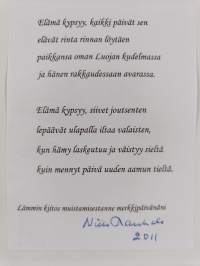 Elämä kypsyy, kaikki päivät sen
elävät rinta rinnan löytäen
paikkansa oman Luojan kudelmassa
ja hänen rakkaudessaan avarassa.
Elämä kypsyy, siivet joutsenten
lepäävät ulapalla iltaa valaisten,
kun hämy laskeutuu ja väistyy sieltä
kuin mennyt päivä uuden aamun tieltä.
Lämmin kiitos muistamisestanne merkkipäivänäni
2011